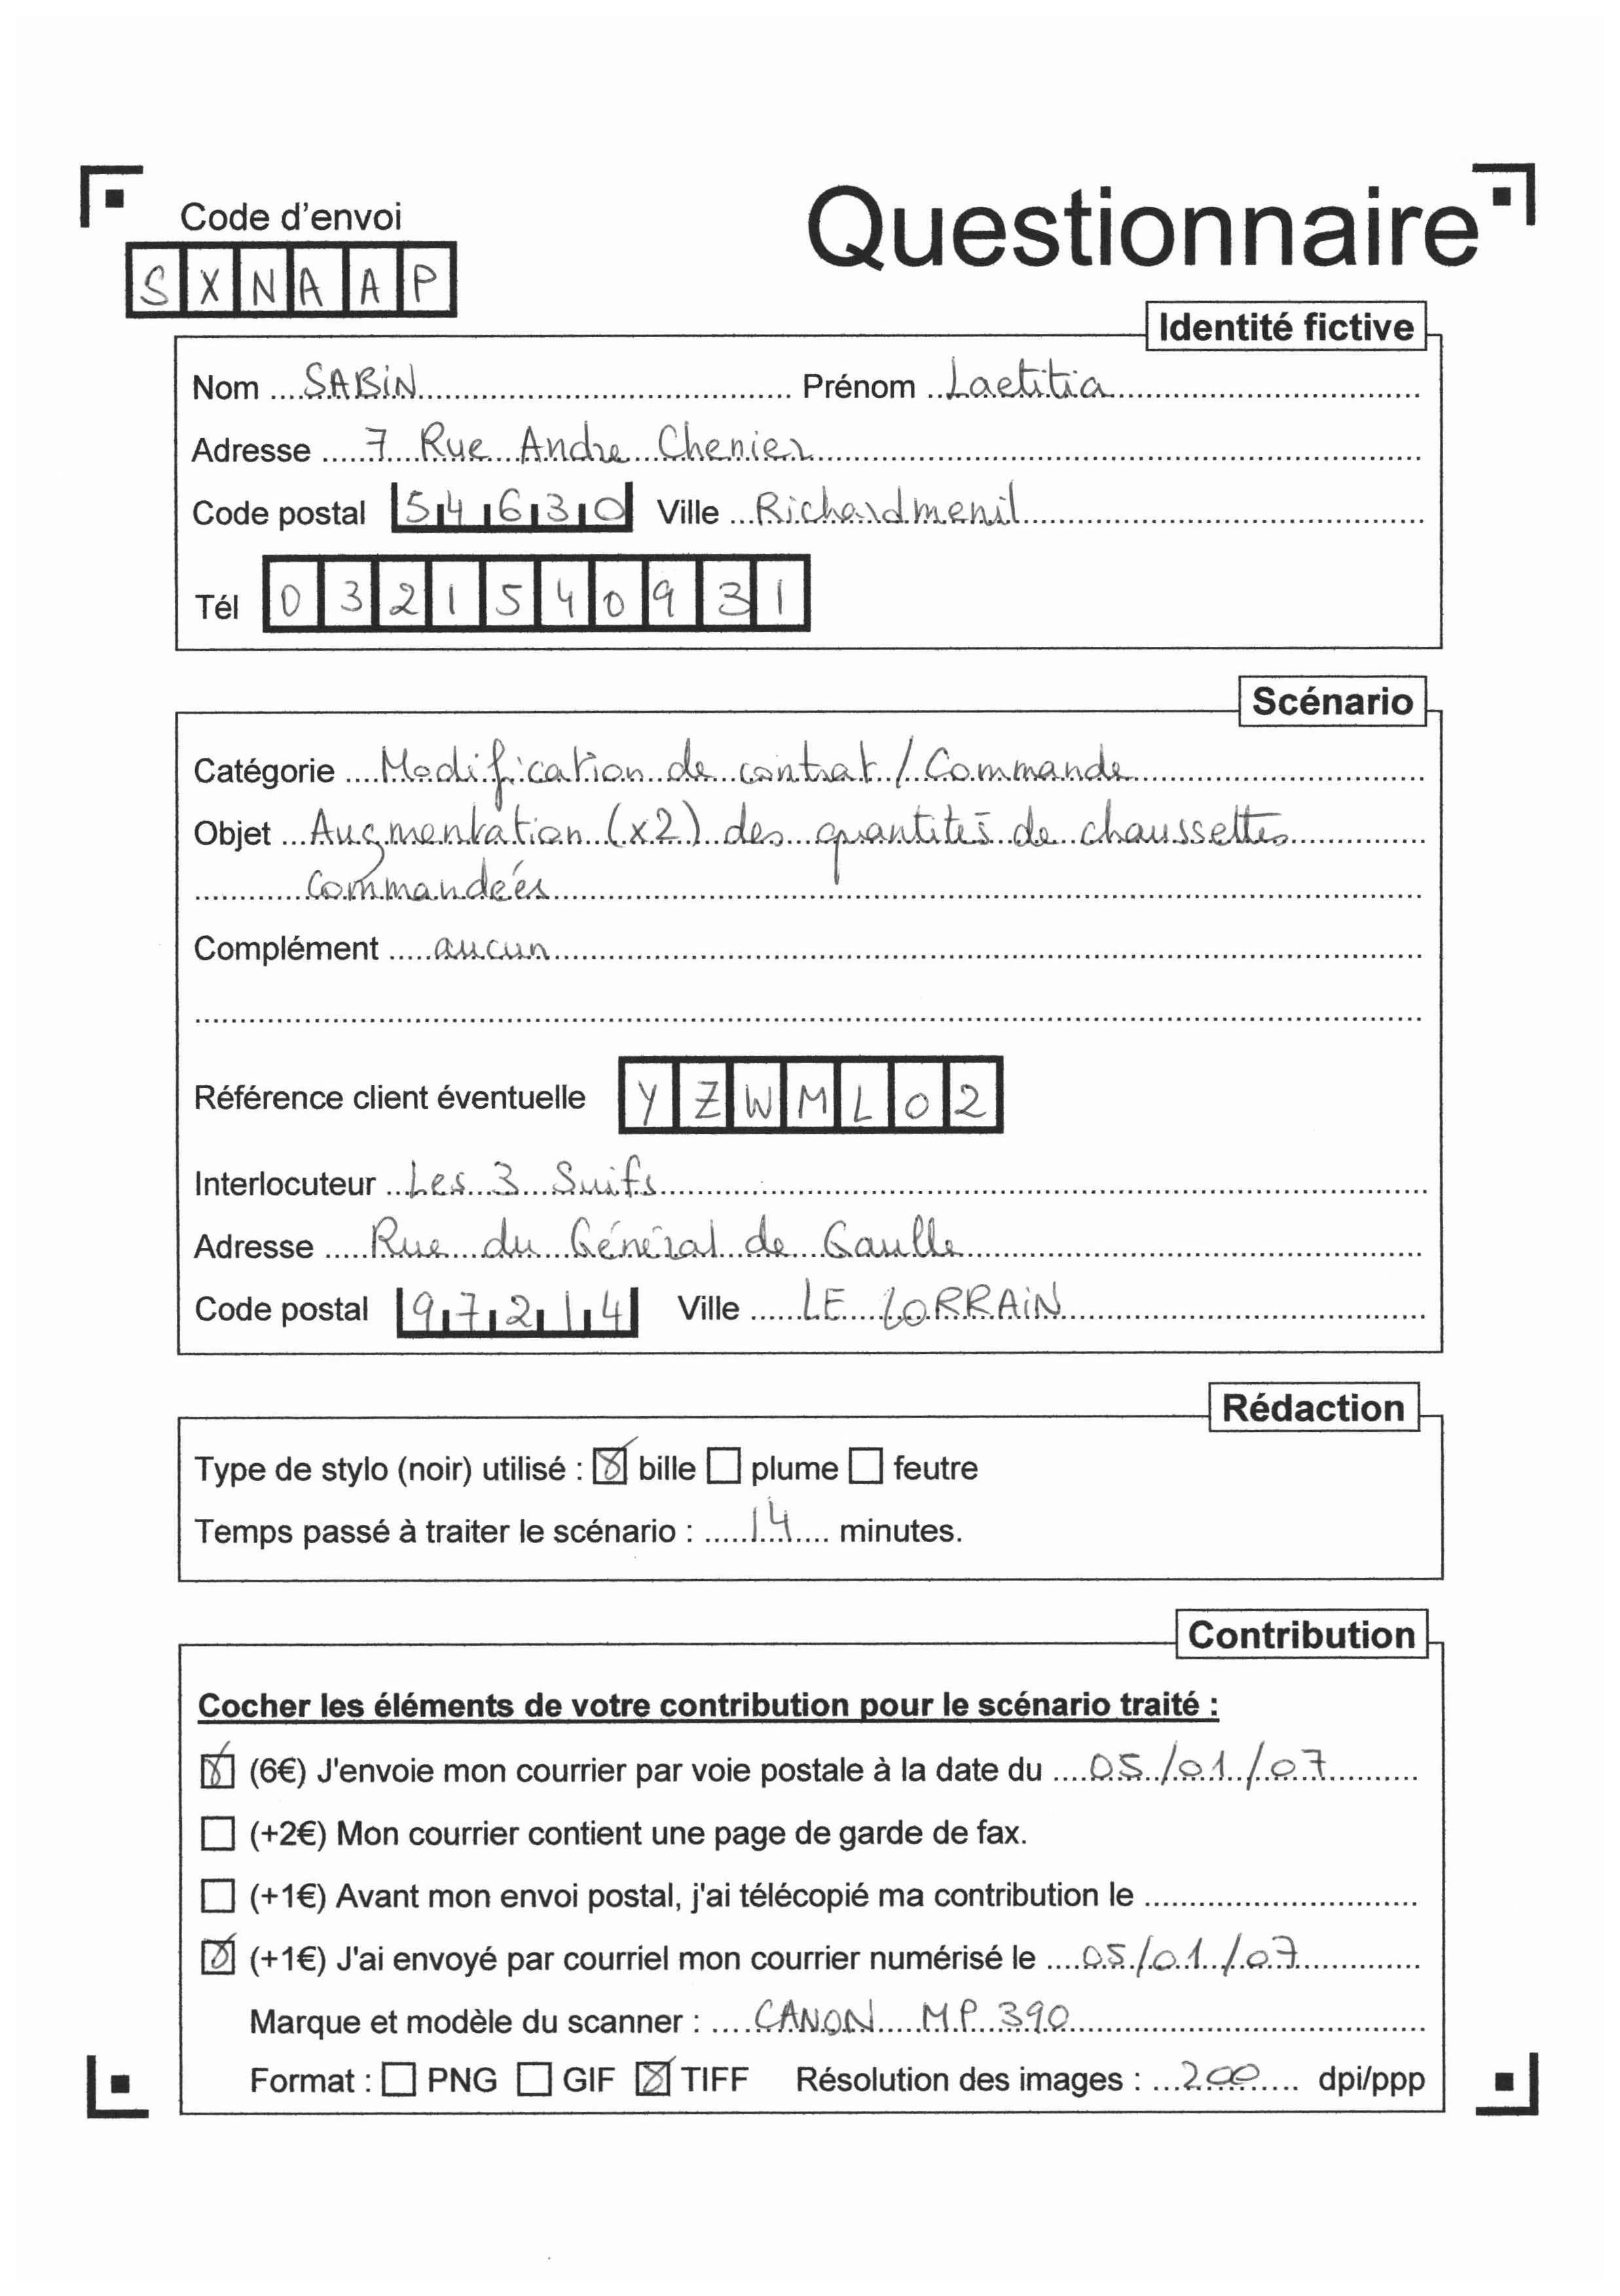 Code d'envoi
Questionnaire
S X N A A P
Identité fictive
Nom SABIN Prénom Laetitia
Adresse 7 Rue Andre Chenier
Code postal 54630 Ville Richardmenil
Tél 0321540931
Scénario
Catégorie Modification de contrat / Commande
Objet Augmentation (x2) des quantités de chaussettes
commandées
Complément aucun
Référence client éventuelle Y Z W M L 0 2
Interlocuteur Les 3 Suifs
Adresse Rue du Général de Gaulle
Code postal 97214 Ville LE LORRAIN
Rédaction
Type de stylo (noir) utilisé : ☒ bille ☐ plume ☐ feutre
Temps passé à traiter le scénario : 14 minutes.
Contribution
Cocher les éléments de votre contribution pour le scénario traité :
☒ (6€) J'envoie mon courrier par voie postale à la date du 05/01/07
☐ (+2€) Mon courrier contient une page de garde de fax.
☐ (+1€) Avant mon envoi postal, j'ai télécopié ma contribution le
☒ (+1€) J'ai envoyé par courriel mon courrier numérisé le 05/01/07
Marque et modèle du scanner : CANON MP 390
Format : ☐ PNG ☐ GIF ☒ TIFF Résolution des images : 200 dpi/ppp